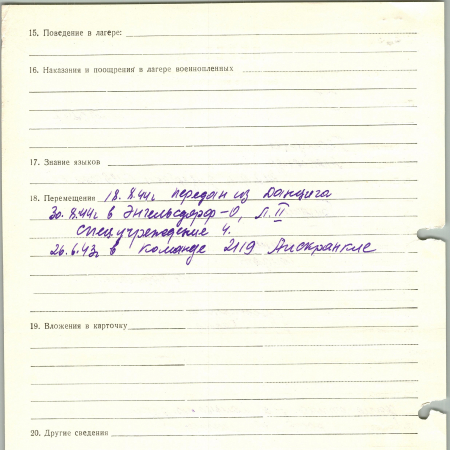 15. Поведение в лагере:
16. Наказания и поощрения в лагере военнопленных
17. Знание языков
18. Перемещение 18.8.44г передан из Данцига
30.8.44г в Энгельсдорф-О, Л. II
спецучреждение 4.
26.6.43г в команде 2119
19. Вложения в карточку
20. Другие сведения